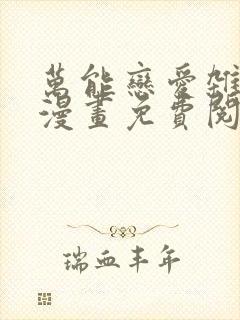 萬能戀愛雜
漫畫免費閱
瑞血丰年